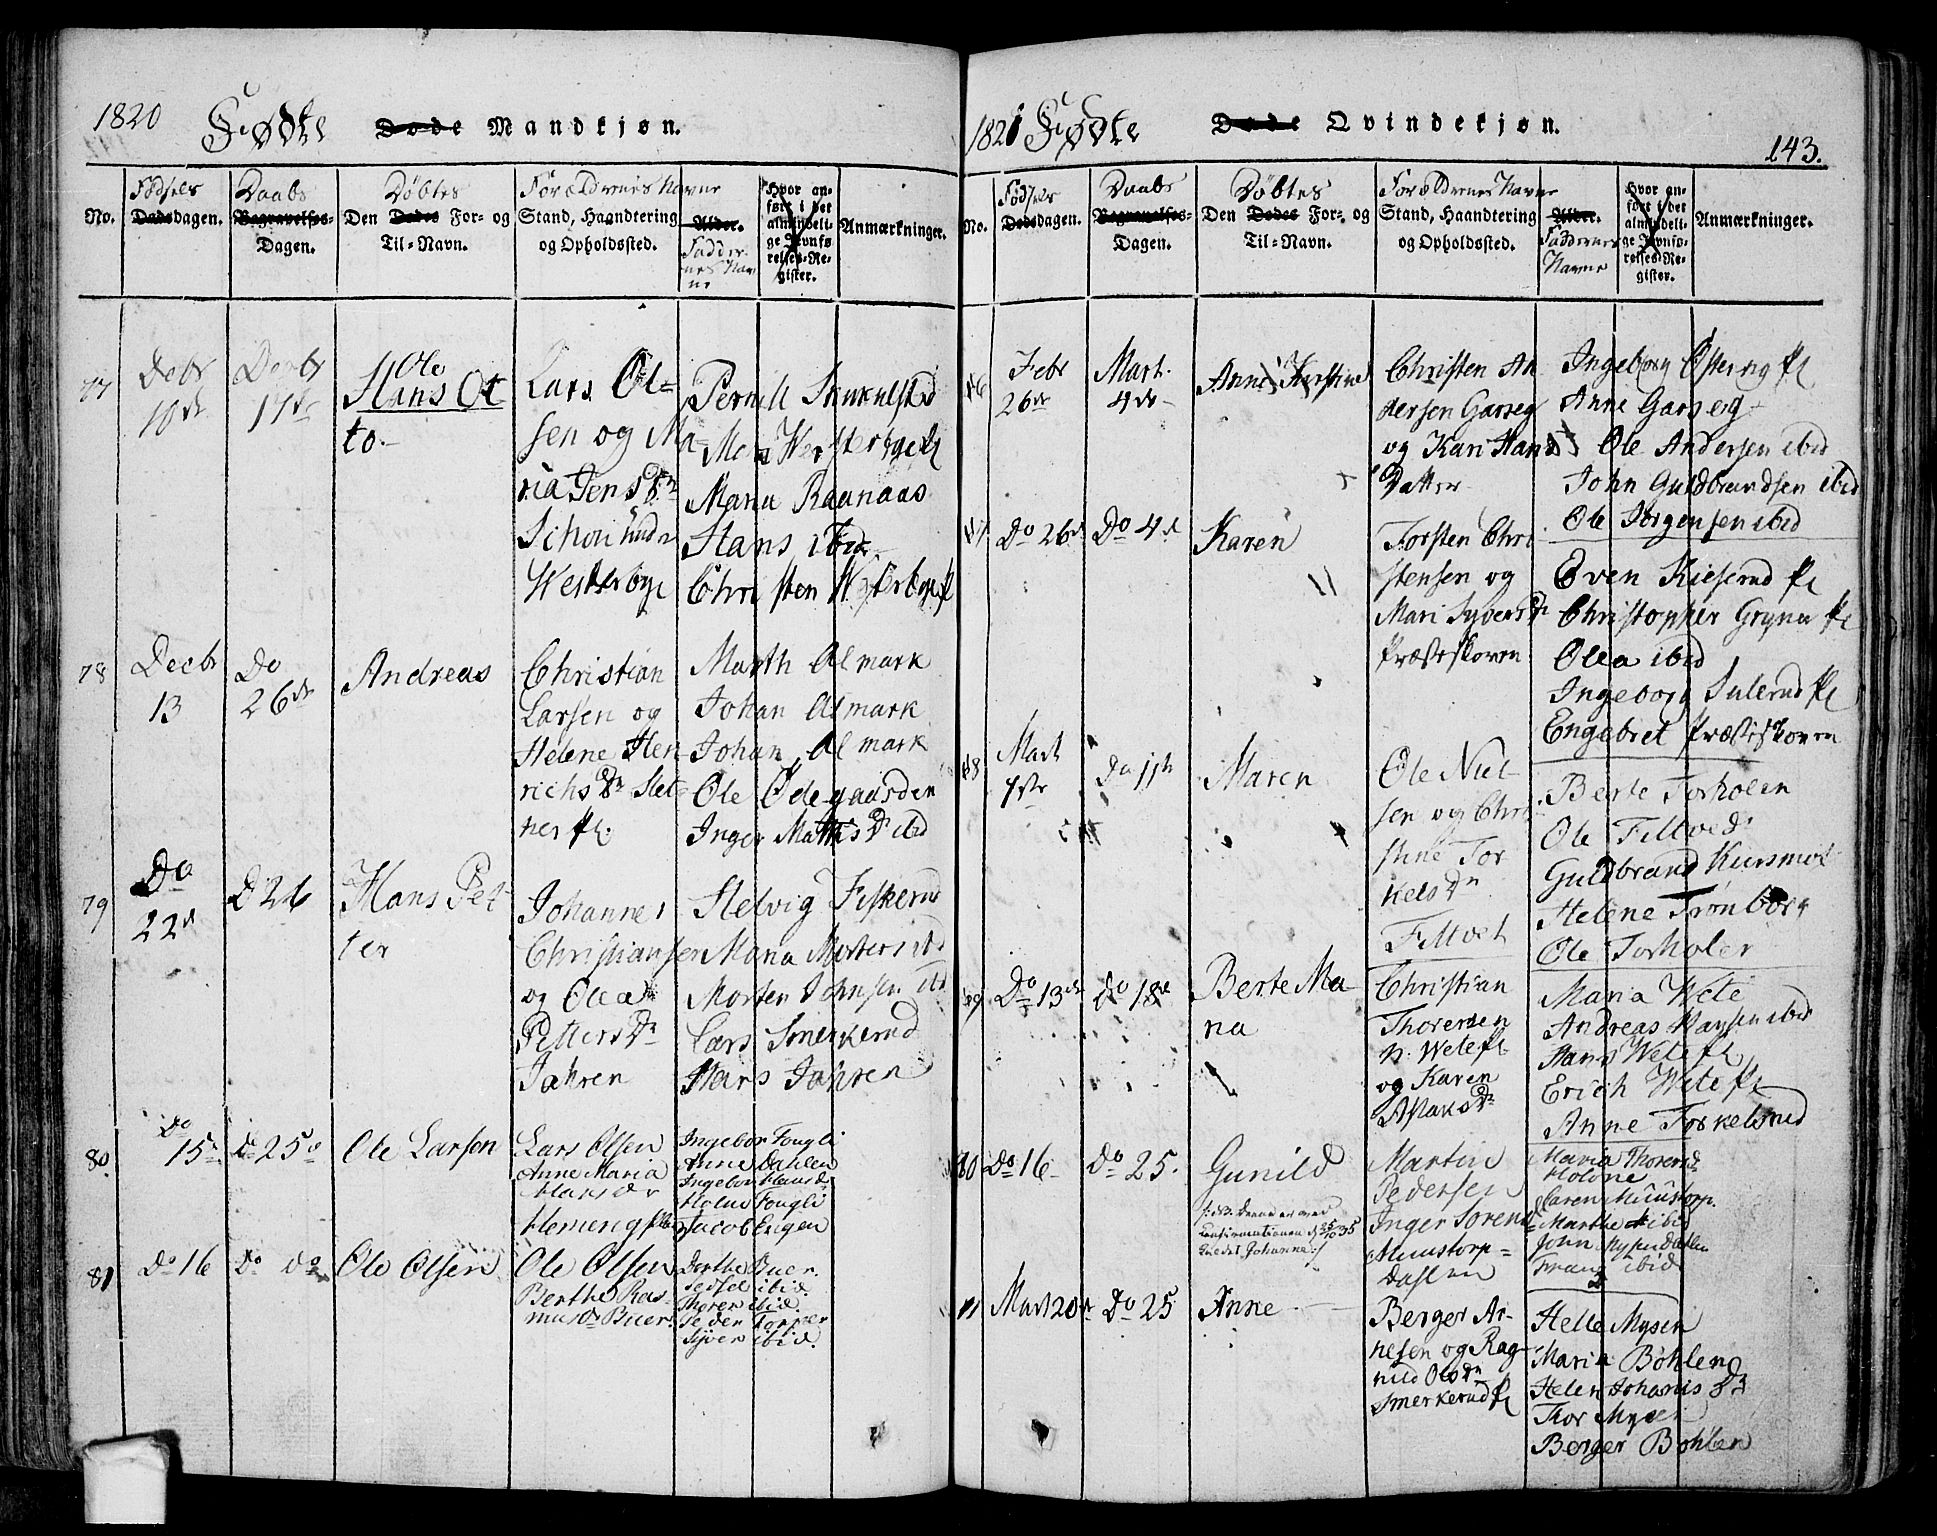 1820 Fødte Døde Mandkjøn.
No.
Fødsels
Dødsdagen.
Daabs
Begravelses-
Dagen.
Døbtes
Den Dødes For- og
Til-Navn.
Forældrenes Navne
Stand, Haandtering
og Opholdssted.
Alder.
Fadder-
nes Nav
ne
Hvor an-
ført i det
almindeli-
ge Jevnfø-
relses-Re-
gister.
Anmærkninger.
77
Debr
10de
Decbr
17de
Ole
Hans Ot
to.-
Lars Ol-
sen og Ma-
ria Jens Dr
Schou under
Westerbye
Pernill
Westerbye
Maria Raanaas
Hans ibid.
Christen Westerbye
78
Decbr
13
Do
26de
Andreas
Christian
Larsen og
Helene Hen
richs Dr Slet
ner pl.
Marth Almark
Johan Almark
Johan Almark
Ole Ødegaarden
Inger Mathis Dr ibid
79
Do
22d
Do 26
Hans Pet
ter
Johannes
Christiansen
og Olea
Petters Dr
Jahren
Helvig Fiskerud
Maria Mortens ibd
Morten Johnsen ibd
Lars Smerkerud
Hans Jahren
80.
Do
15de
Do 25de
Ole Larsen
Lars Olsen
Anne Maria
Hans Dr
Hemeng
Ingebor Fougli
Anne Dahlen
Ingebor Hans Dr
Holm Fougli
Jacob Engen
81
Do 16
Do Do
Ole Olsen
Ole Olsen
Berthe Ras-
mus Dr Buer.
Berthe Buer.
Sedsel ibid.
Thoren ibid.
Peder Torper
Siver ibid.
1821 Fødte Døde Qvindekjøn.
143.
No.
Fødsels
Dødsdagen.
Daabs
Begravelses-
Dagen.
Døbtes
Den Dødes For- og
Til-Navn.
Forældrenes Navne
Stand, Haandtering
og Opholdssted.
Alder.
Faddernes
Navne
Hvor an-
ført i det
almindeli-
ge Jevnfø-
relses-Re-
gister.
Anmærkninger.
16
Febr
26de
Mart.
4de
Anne Kirstine
Christen An
dersen Garseg
og Kari Hans
Datter
Ingeborg Østereng pl
Anne Garseg
Ole Andersen ibid
John Guldbrandsen ibid
Ole Jørgensen ibid
17
Do 26de
Do 4d
Karen
Torsten Chri
stensen og
Mari Syvers Dr
Præsteskoven
Even Kieserud pl
Christopher Gryna pl
Olea ibid
Ingeborg Sulerud pl
Engebret Præsteskoven
18
Mart
7de
Do 11te
Maren
Ole Niel
sen og Chri
stine Tor
kels Dr
Filtvet
Berte Torholen
Ole Filtved
Guldbrand
Helene Trønborg
Ole Torholen
19
Do 13de
Do 18de
Berte Ma-
ria
Christian
Thoresen
n. Wete pl
og Karen
Aslaks Dr
Maria Wete
Andreas ibid
Hans Wete pl
Erich Wete pl
Anne Torkelsrud
20
Do 16
Do 25.
Gunild
Confirmationen
kaldet Johanne :/
Martin
Pedersen
Inger Sørens
Muustorp-
Dahlen
Maria Thorers Dr
Holone
Karen Muustorp.
Marthe ibid
John
Frans ibid
21
Mart 20de
Do 25
Anne
Berger Ar-
nesen og Rag-
nild Ols Dr
Smerkerud pl
Helle Mysen
Maria Bøhlen
Helen Johanis Dr
Thor Mysen
Berger Bøhlen